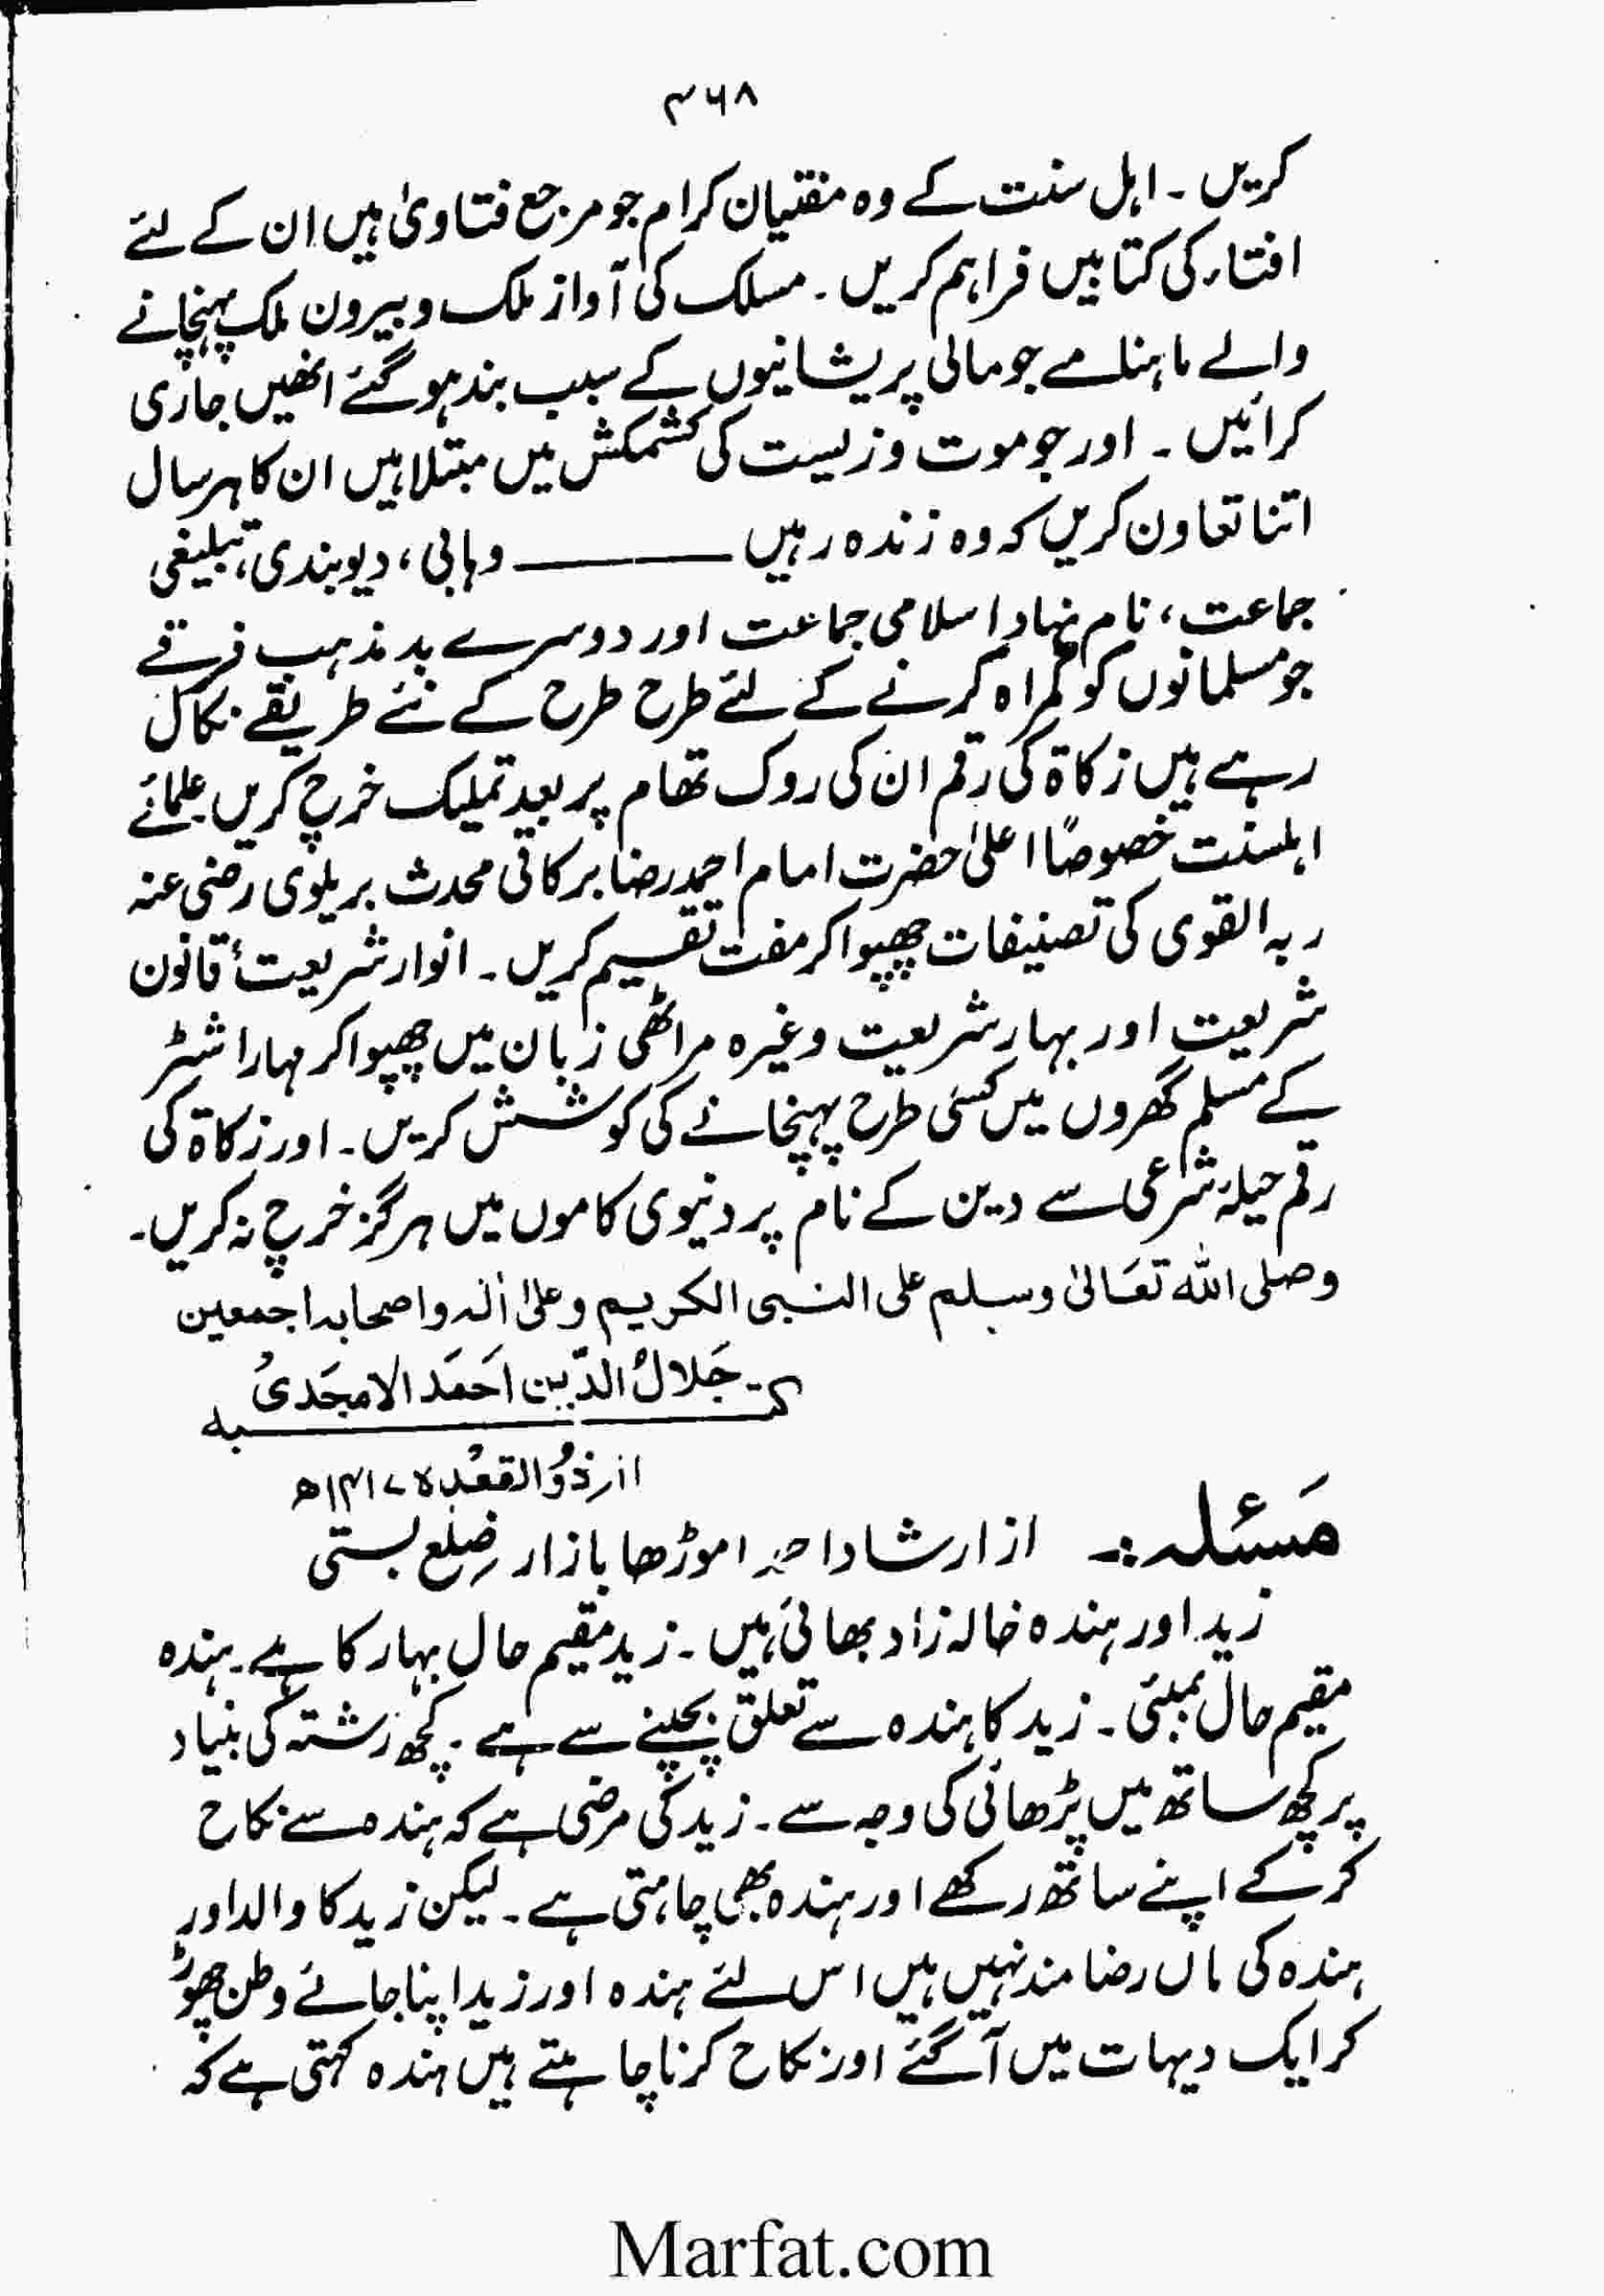 ۴۶۸
کریں ۔ اہل سنت کے وہ مفتیان کرام جو مرجع فتاویٰ ہیں ان کے لئے
افتار کی کتابیں فراہم کریں ۔ مسلک کی آواز ملک و بیرون ملک پہنچانے
والے ماہنامے جو مالی پریشانیوں کے سبب بند ہو گئے انھیں جاری
کرائیں ۔ اور جو موت و زیست کی کشمکش میں مبتلا ہیں ان کا ہر سال
اتنا تعاون کریں کہ وہ زندہ رہیں ـــــــــ وہابی ، دیوبندی ، تبلیغی
جماعت ، نام نہاد اسلامی جماعت اور دوسرے بد مذہب فرقے
جو مسلمانوں کو گمراہ کرنے کے لئے طرح طرح کے نئے طریقے نکال
رہے ہیں زکاۃ کی رقم ان کی روک تھام پر بعد تملیک خرچ کریں علمائے
اہلسنت خصوصاً اعلیٰ حضرت امام احمد رضا برکاتی محدث بریلوی رضی عنہ
ربہ القوی کی تصنیفات چھپوا کر مفت تقسیم کریں ۔ انوار شریعت ، قانون
شریعت اور بہار شریعت وغیرہ مراٹھی زبان میں چھپوا کر مہاراشٹر
کے مسلم گھروں میں کسی طرح پہنچانے کی کوشش کریں ۔ اور زکاۃ کی
رقم حیلۂ شرعی سے دین کے نام پر دنیوی کاموں میں ہرگز خرچ نہ کریں ۔
وصلی اللہ تعالیٰ وسلم علی النبی الکریم وعلیٰ اٰلہ واصحابہ اجمعین
کتبہ جَلالُ الدّین اَحمَد الامجَدیُ
ازرذوُالقعْدہ ۱۴۱۷ھ
مَسئلہ :۔ از ارشاد احمد اموڑھا بازار ضلع بستی
زید اور ہندہ خالہ زاد بھائی ہیں ۔ زید مقیم حال بہار کا ہے ۔ ہندہ
مقیم حال بمبئی ۔ زید کا ہندہ سے تعلق بچپنے سے ہے ۔ کچھ رشتہ کی بنیاد
پر کچھ ساتھ میں پڑھائی کی وجہ سے ۔ زید کی مرضی ہے کہ ہندہ سے نکاح
کر کے اپنے ساتھ رکھے اور ہندہ بھی چاہتی ہے ۔ لیکن زید کا والد اور
ہندہ کی ماں رضامند نہیں ہیں اس لئے ہندہ اور زید اپنا جائے وطن چھوڑ
کر ایک دیہات میں آ گئے اور نکاح کرنا چاہتے ہیں ہندہ کہتی ہے کہ
Marfat.com